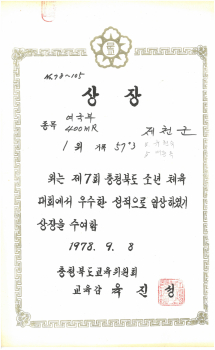 상장
종목 여국부
400MR 제천군
1위 기록 57"3
위는 제7회 충청북도 소년 체육
대회에서 우수한 성적으로 입상하였기
상장을 수여함
1978. 9. 8
충청북도교육위원회
교육감 육진성